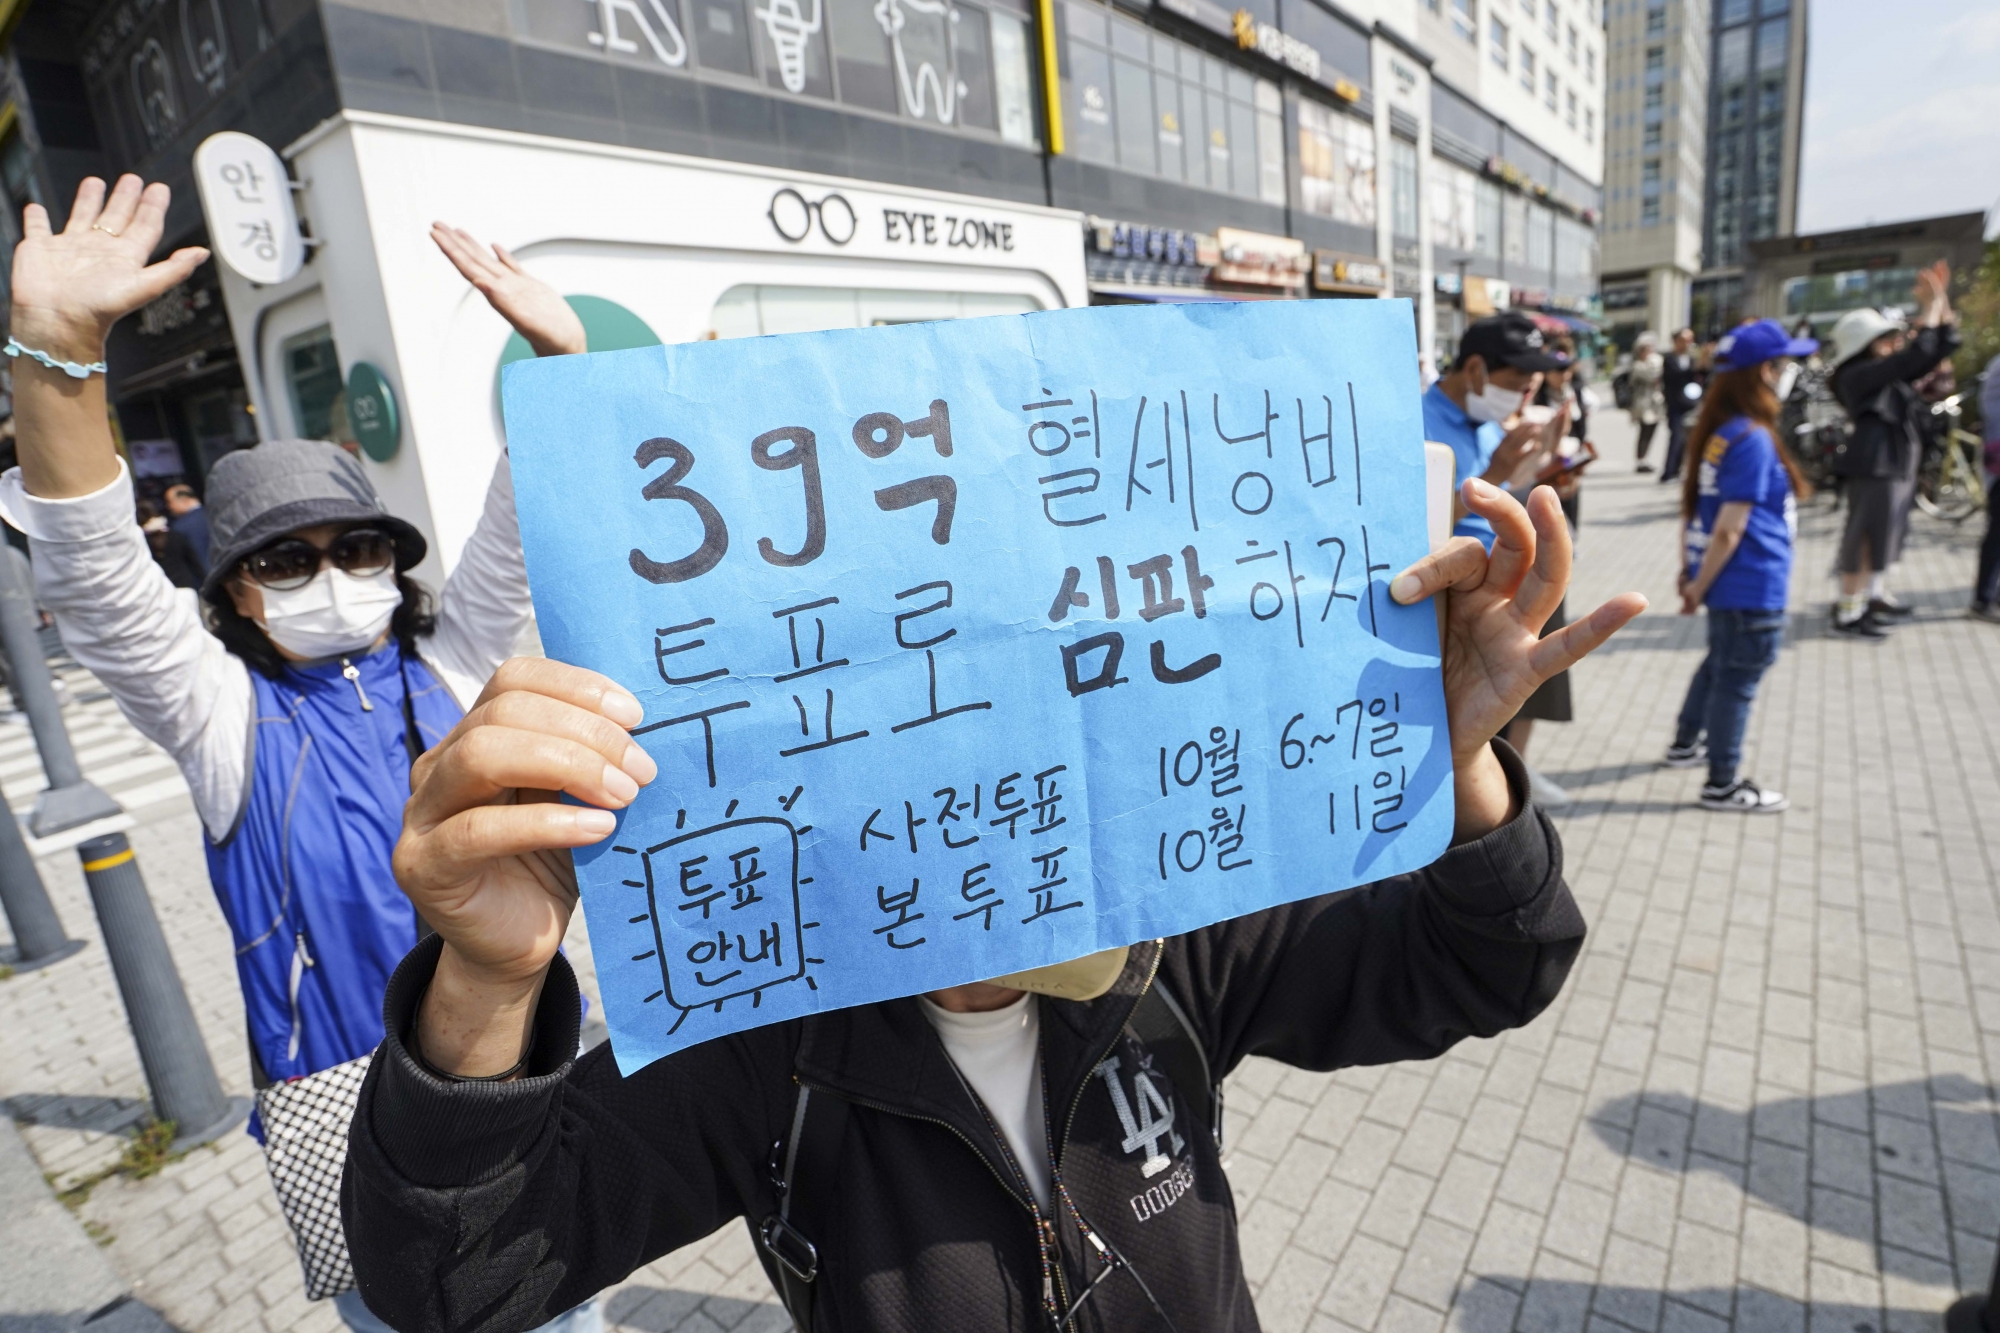 안경
EYE ZONE
39억 혈세낭비
투표로 심판하자
투표
안내
사전투표 10월 6~7일
본투표 10월 11일
LA